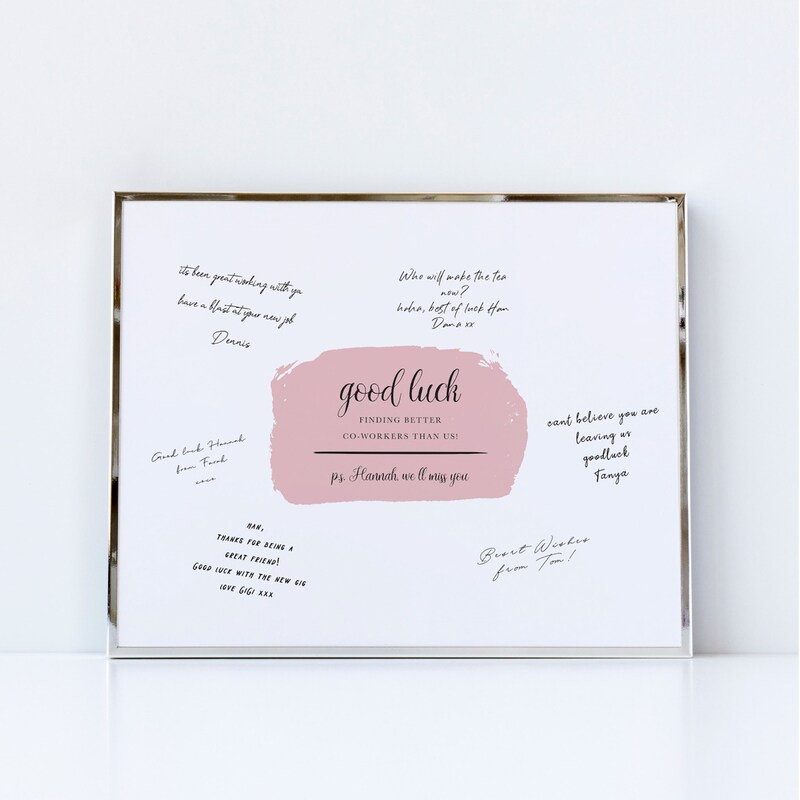 its been great working with ya
have a blast at your new job
Dennis
Who will make the tea
now?
haha, best of luck Han
Dana xx
good luck
FINDING BETTER
CO-WORKERS THAN US!
ps. Hannah, we'll miss you
Good luck Hannah
from Farah
xoxo
cant believe you are
leaving us
goodluck
Tanya
HAN,
THANKS FOR BEING A
GREAT FRIEND!
GOOD LUCK WITH THE NEW GIG
LOVE GIGI XXX
Besrt Wishes
from Tom!